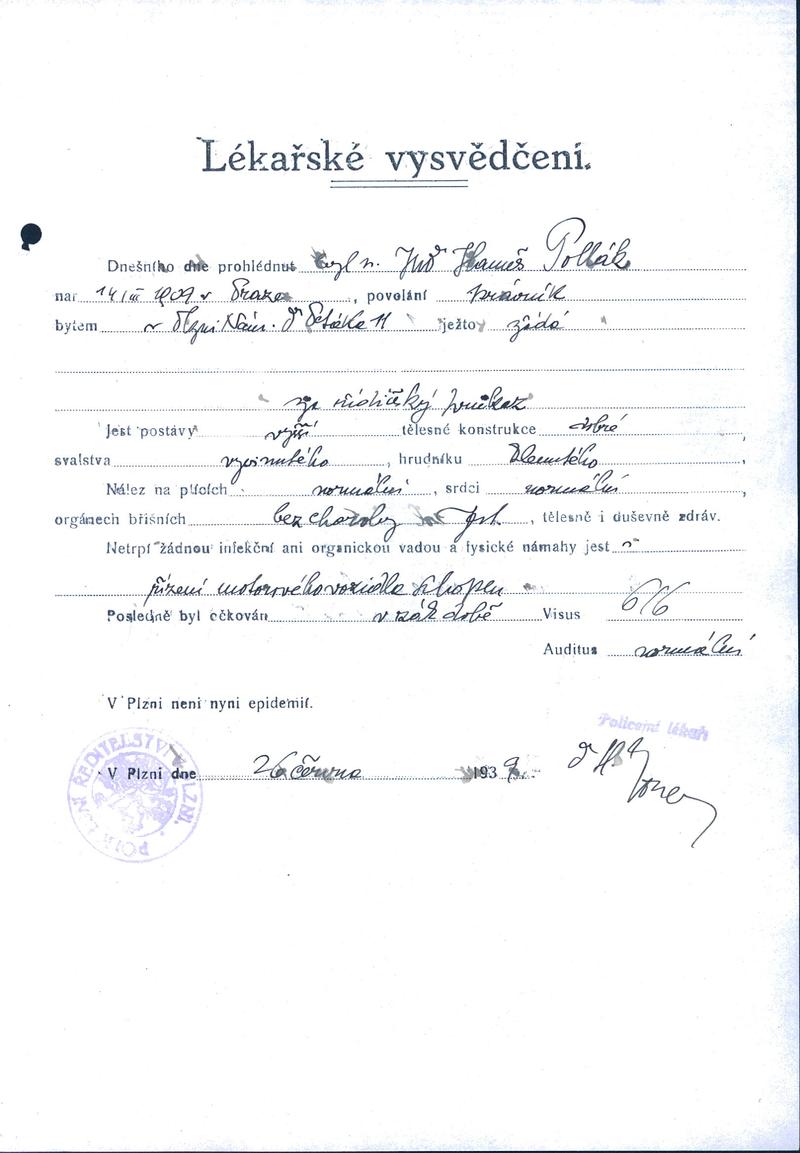 Lékařské vysvědčení.
Dnešního dne prohlédnut JUDr Hanuš Pollák
nar 14/III 1909 v Praze, povolání právník
bytem v Plzni Nám. Dr Pětáka 11 ježto žádá
za řidičský průkaz
Jest postavy vyšší tělesné konstrukce dobré,
svalstva vyvinutého, hrudníku klenutého,
Nález na plících normální, srdci normální,
orgánech břišních bez choroby, tělesně i duševně zdráv.
Netrpí žádnou infekční ani organickou vadou a fysické námahy jest
řízení motorového vozidla schopen
Posledně byl očkován v zák době Visus 6/6
Auditus normální
V Plzni není nyní epidemií.
Policejní lékař
V Plzni dne 26 června 1939.
POLIC. ŘEDITELSTVÍ V PLZNI.